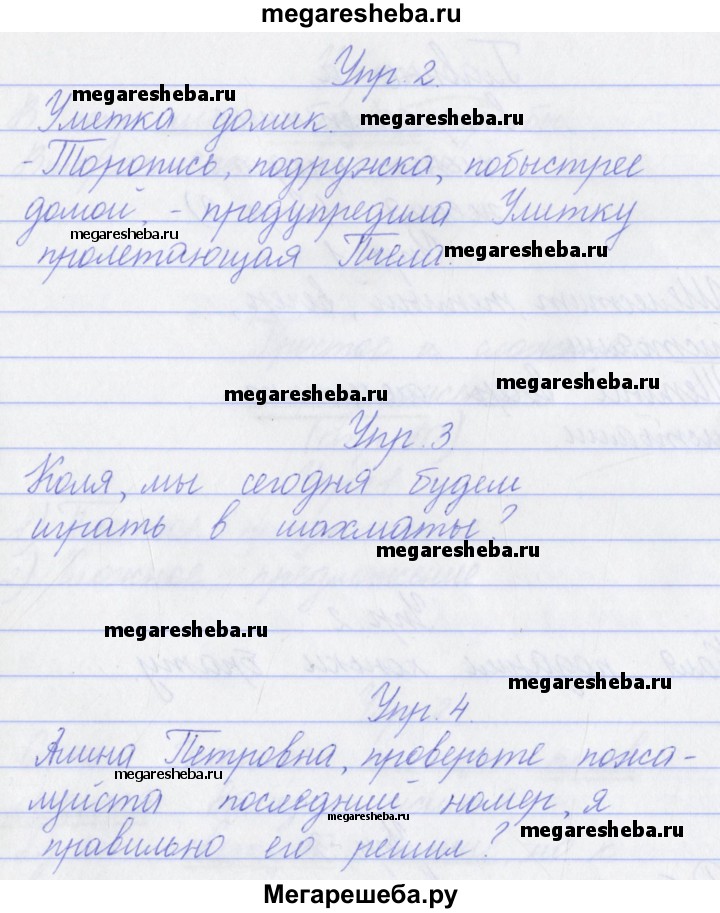 megaresheba.ru
Упр. 2.
megaresheba.ru
Улитка домик.
megaresheba.ru
- Торопись, подружка, побыстрее
домой, - предупредила Улитку
megaresheba.ru
пролетающая Пчела.
megaresheba.ru
megaresheba.ru
megaresheba.ru
Упр. 3.
Коля, мы сегодня будем
играть в шахматы?
megaresheba.ru
megaresheba.ru
megaresheba.ru
Упр. 4.
Алина Петровна, проверьте пожа-
megaresheba.ru
луйста последний номер, я
megaresheba.ru
правильно его решил?
megaresheba.ru
Мегарешеба.ру